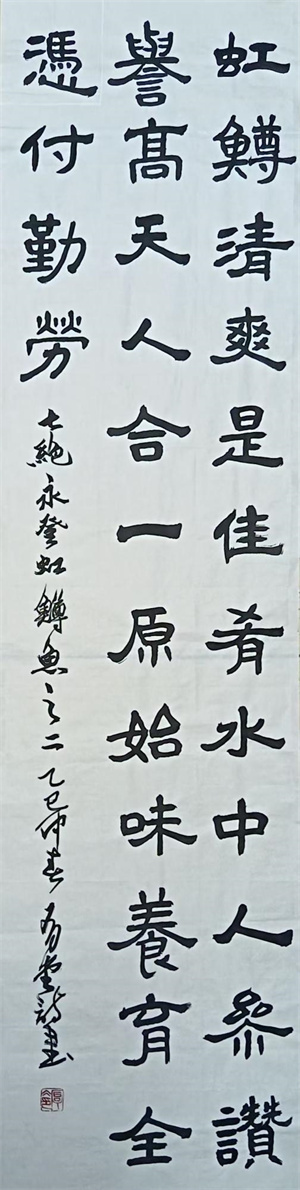 虹鱒清爽是佳肴水中人参讚
譽高天人合一原始味養育全
憑付勤勞
七絶永登虹鱒魚之二乙巳仲春有堂詩書